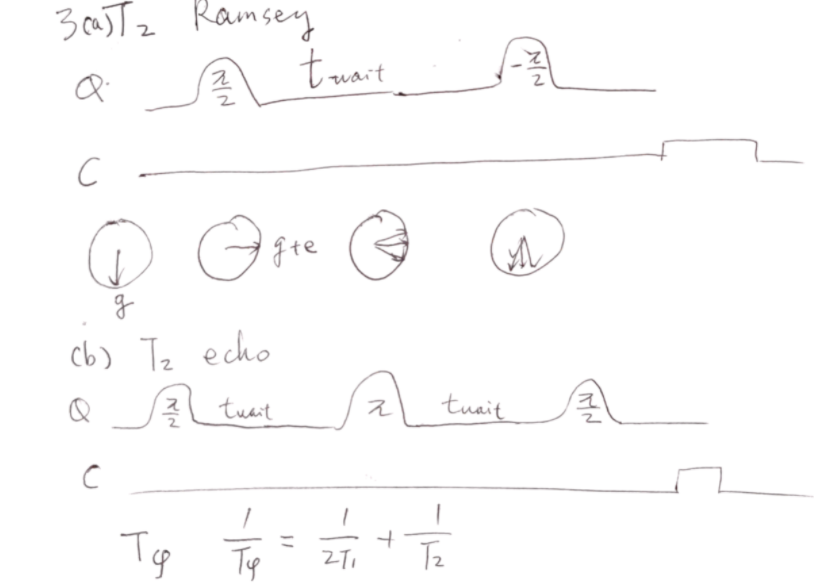 3(a) T₂ Ramsey
Q π/2 t wait -π/2
C
g g+e
(b) T₂ echo
Q π/2 twait π twait π/2
C
Tφ 1/Tφ = 1/2T₁ + 1/T₂